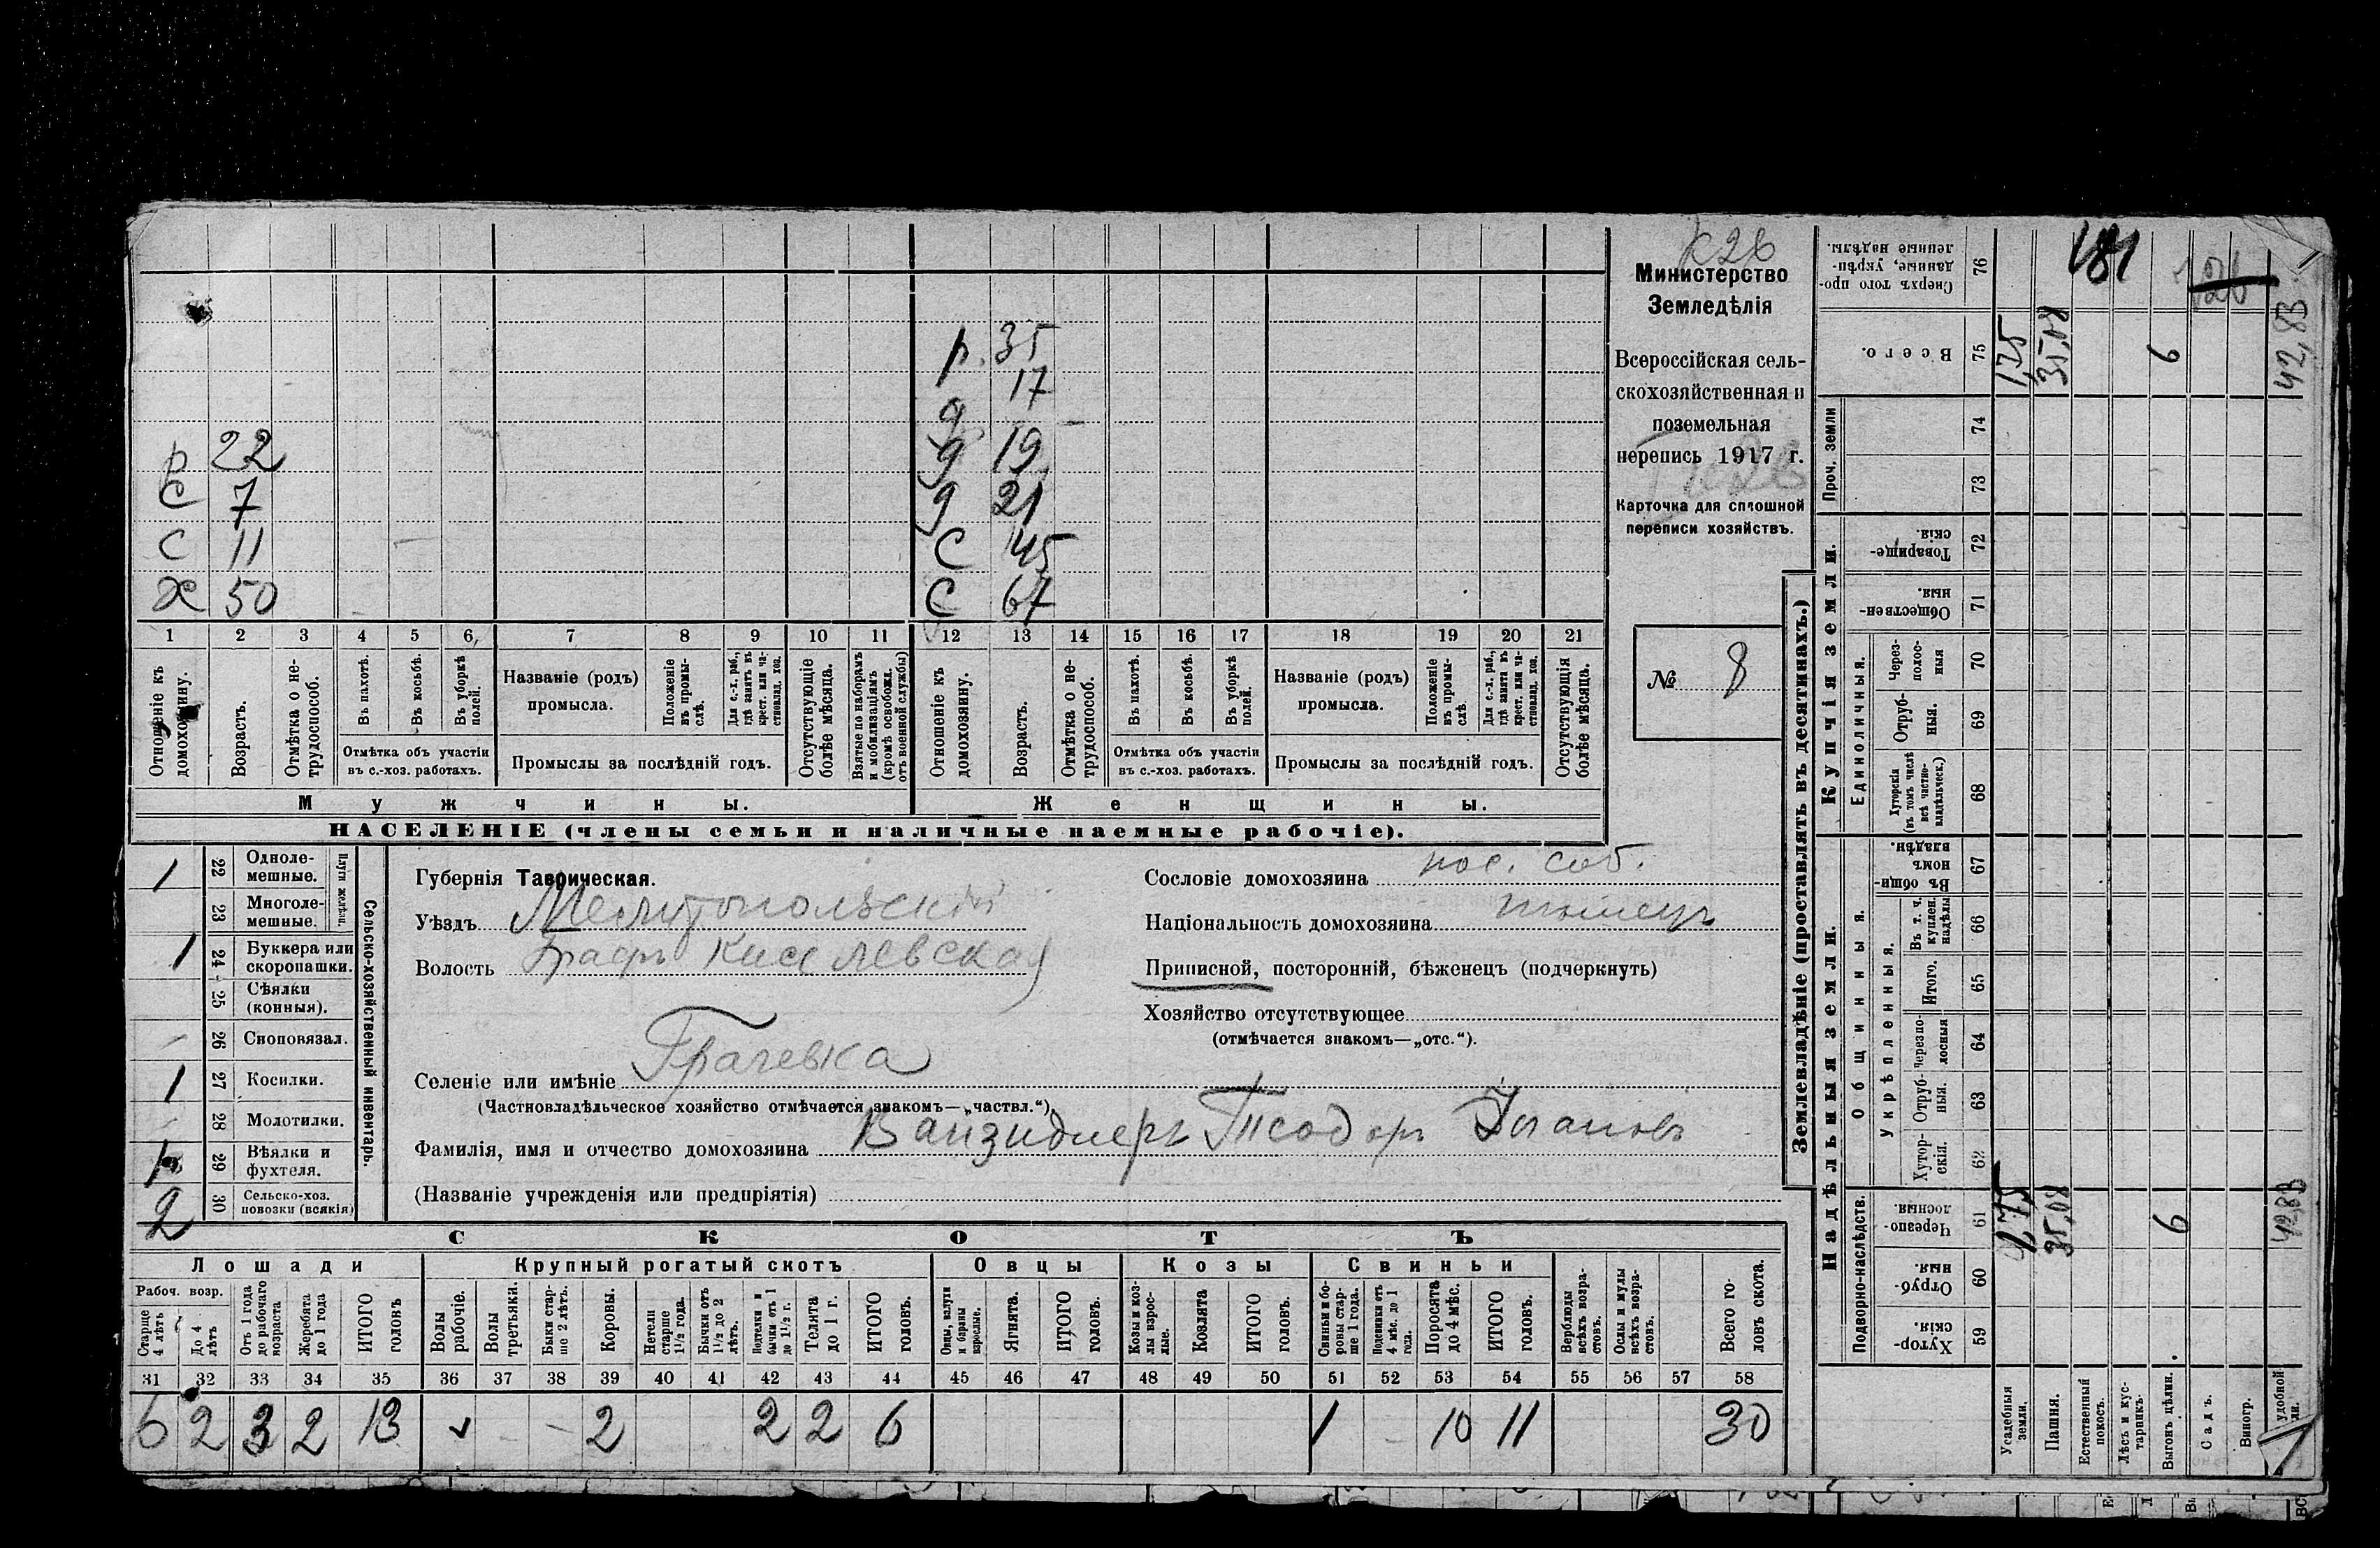 К26
Министерство
Земледѣлія
Всероссійская сель-
скохозяйственная и
поземельная
перепись 1917 г.
Карточка для сплошной
переписи хозяйствъ.
№ 8
р. 35
17
д 19
р 22 д 21
С 7
С 11 С 45
Х 50 С 67
1 2 3 4 5 6 7 8 9 10 11 12 13 14 15 16 17 18 19 20 21
Отношеніе къ домохозяину.
Возрастъ.
Отмѣтка о не-трудоспособ.
Въ пахотѣ.
Въ косьбѣ.
Въ уборкѣ полей.
Отмѣтка объ участіи
въ с.-хоз. работахъ.
Названіе (родъ)
промысла.
Положеніе въ промы-слѣ.
Для с.-х. раб., гдѣ занятъ въ крест. или ча-стновлад. хоз.
Промыслы за послѣдній годъ.
Отсутствующіе болѣе мѣсяца.
Взятые по наборамъ и мобилизаціямъ (кромѣ освобожд. отъ военной службы)
Отношеніе къ домохозяину.
Возрастъ.
Отмѣтка о не-трудоспособ.
Въ пахотѣ.
Въ косьбѣ.
Въ уборкѣ полей.
Отмѣтка объ участіи
въ с.-хоз. работахъ.
Названіе (родъ)
промысла.
Положеніе въ промы-слѣ.
Для с.-х. раб., гдѣ занята въ крест. или ча-стновлад. хоз.
Промыслы за послѣдній годъ.
Отсутствующія болѣе мѣсяца.
Мужчины. Женщины.
НАСЕЛЕНІЕ (члены семьи и наличные наемные рабочіе).
Сельско-хозяйственный инвентарь.
Плуги желѣзн.
1 22 Одноле-мешные.
23 Многоле-мешные.
1 24 Буккера или скоропашки.
25 Сѣялки (конныя).
26 Сноповязал.
1 27 Косилки.
28 Молотилки.
1 29 Вѣялки и фухтеля.
2 30 Сельско-хоз. повозки (всякія)
Губернія Таврическая.
Уѣздъ Мелитопольскій
Волость Графъ Киселевская
Селеніе или имѣніе Грачевка
(Частновладѣльческое хозяйство отмѣчается знакомъ—„частвл.“)
Фамилія, имя и отчество домохозяина Ванзидлеръ Теодоръ Ивановъ
(Названіе учрежденія или предпріятія)
Сословіе домохозяина пос. соб.
Національность домохозяина нѣмецъ
Приписной, посторонній, бѣженецъ (подчеркнуть)
Хозяйство отсутствующее
(отмѣчается знакомъ—„отс.“).
СКОТЪ
Лошади Крупный рогатый скотъ Овцы Козы Свиньи
Рабоч. возр.
Старше 4 лѣтъ
До 4 лѣтъ
Отъ 1 года до рабочаго возраста
Жеребята до 1 года
ИТОГО головъ
Волы рабочіе.
Волы третьяки.
Быки стар-ше 2 лѣтъ.
Коровы.
Нетели старше 1½ года.
Бычки отъ 1½ до 2 лѣтъ.
Подтелки и бычки отъ 1 до 1½ г.
Телята до 1 г.
ИТОГО головъ.
Овцы, валухи и бараны взрослые.
Ягнята.
ИТОГО головъ.
Козы и коз-лы взрос-лые.
Козлята
ИТОГО головъ.
Свиньи и бо-ровы стар-ше 1 года.
Подсвинки отъ 4 мѣс. до 1 года.
Поросята до 4 мѣс.
ИТОГО головъ.
Верблюды всѣхъ возра-стовъ.
Ослы и мулы всѣхъ возра-стовъ.
Всего го-ловъ скота.
31 32 33 34 35 36 37 38 39 40 41 42 43 44 45 46 47 48 49 50 51 52 53 54 55 56 57 58
6 2 3 2 13 2 2 2 6 1 10 11 30
Землевладѣніе (проставлять въ десятинахъ.)
Надѣльныя земли. Купчія земли. Проч. земли
Подворно-наслѣдств.
Общинныя.
Укрѣпленныя.
Единоличныя.
Хутор-скія. 59
Отруб-ныя. 60
Черезпо-лосныя. 61
Хутор-скія. 62
Отруб-ныя. 63
Черезпо-лосныя 64
Итого. 65
Въ т. ч. куплен. надѣлы 66
Въ общи-номъ владѣн. 67
Хуторскія (въ томъ числѣ всѣ частно-владѣльческ.) 68
Отруб-ныя. 69
Через-полос-ныя 70
Обществен-ныя. 71
Товарище-скія. 72
73
74
Всего. 75
Сверхъ того про-данные, укрѣп-ленные надѣлы. 76
Усадебныя земли. 1,75 1,75
Пашня. 35,08 35,08
Естественный покосъ.
Лѣсъ и кус-тарникъ.
Выгонъ цѣлин. 6 6
Садъ.
Виногр.
удобной 42,83 42,83
181
126